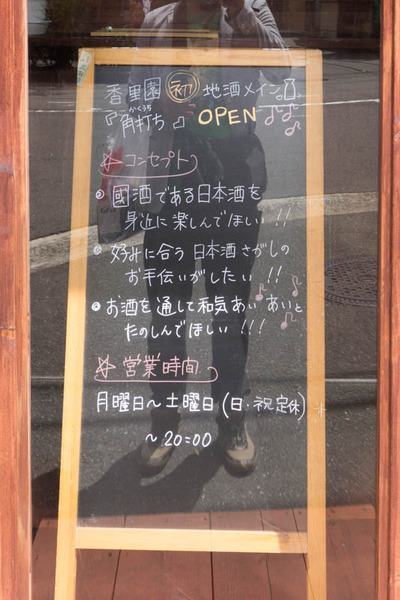 香里園 初 地酒メイン
かくうち
『角打ち』 OPEN
コンセプト
國酒である日本酒を
身近に楽しんでほしい!!
好みに合う日本酒さがしの
お手伝いがしたい!!
お酒を通して和気あいあいと
たのしんでほしい!!!
営業時間
月曜日〜土曜日(日・祝定休)
〜20:00